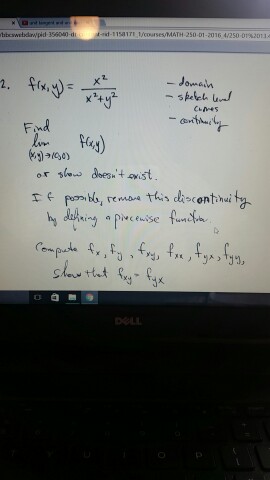 /bbcswebdav/pid-356040-dt-content-rid-1158171_1/courses/MATH-250-01-2016_4/250-01%2013
2. f(x,y) = x² / (x²+y²)
- domain
- sketch level curves
- continuity
Find
lim (x,y)→(0,0) f(x,y)
or show doesn't exist.
If possible, remove this discontinuity
by defining a piecewise function.
Compute fx, fy, fxy, fxx, fyx, fyy,
Show that fxy = fyx
DELL